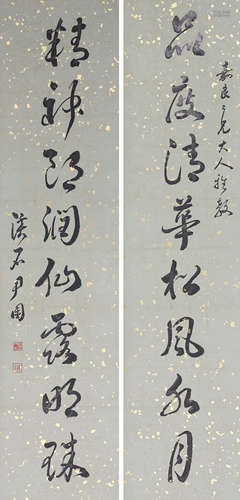 嘉良仁兄大人雅教
品度清華松風水月
精神朗潤仙露明珠